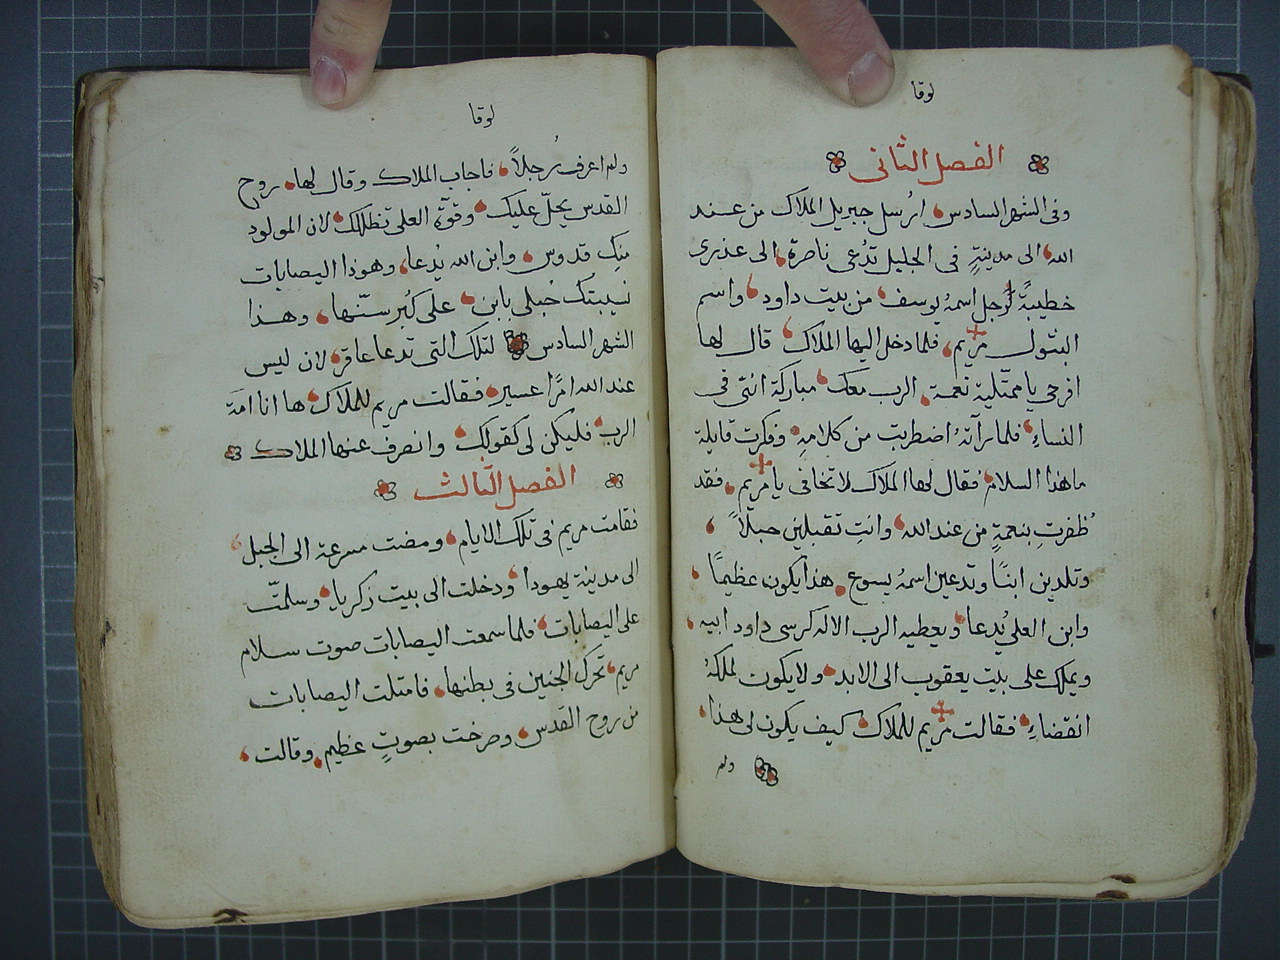 لوقا
الفصل الثانى
وفى الشهر السادس ارُسل جبريل الملاك من عند
الله الى مدينةٍ فى الجليل تدُعى ناصرة الى عذرى
خطيبةً لرجل اسمهُ يوسف من بيت داود واسم
البتول مريم فلما دخل اليها الملاك قال لها
افرحى يا ممتلية نعمة الرب معك مباركة انتى فى
النساءِ فلما رأتهُ اضطربت من كلامهِ وفكرت قايلة
ما هذا السلام فقال لها الملاك لا تخافى يا مريم فقد
ظفرتِ بنعمةٍ من عند الله وانتِ تقبلين حبلاً
وتلدين ابنًا وتدعين اسمهُ يسوع هذا يكون عظيمًا
وابن العلى يُدعا ويعطيه الرب الاله كرسى داود ابيه
ويملك على بيت يعقوب الى الابد ولا يكون لملكهُ
انقضاءِ فقالت مريم للملاك كيف يكون لى هذا
ولم
لوقا
ولم اعرف رُجلاً فاجاب الملاك وقال لها روح
القدس يحلّ عليك وقوّة العلى تظللك لان المولود
منِك قدوس وابن الله يُدعا وهوذا اليصابات
نسيبتك حُبلى بابن على كُبر سنّها وهذا
الشهر السادس لتلك التى تدعا عاقر لان ليس
عند الله امرًا عسير فقالت مريم للملاك ها انا امَة
الرب فليكن لى كقولك وانصرف عنها الملاك
الفصل الثالث
فقامت مريم فى تلك الايام ومضت مسرعة الى الجبل
الى مدينة يهودا ودخلت الى بيت زكريا وسلمتّ
على اليصابات فلما سمعت اليصابات صوت سلام
مريم تحرك الجنين فى بطنها فامتلت اليصابات
من روح القدس وصرخت بصوتٍ عظيم وقالت